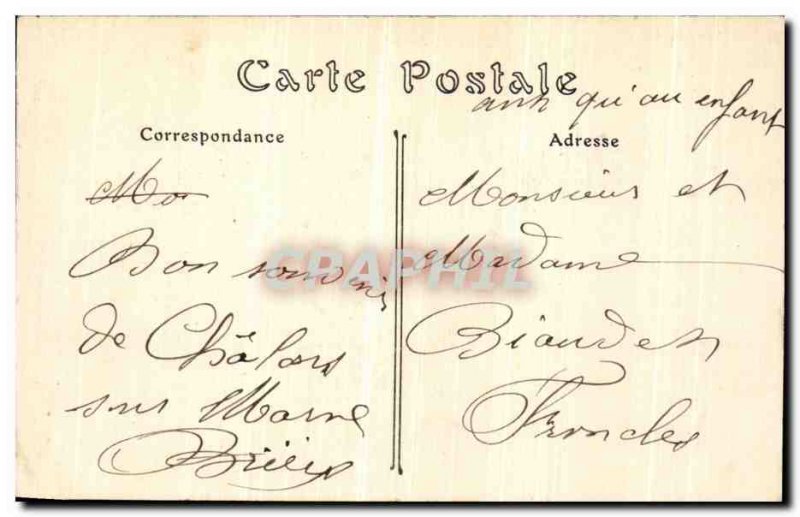 Carte Postale
qu'au enfant
Correspondance
Mo
Bon souvenir
de Châlons
sur Marne
Adresse
Monsieur et
Madame
Biaudet
Froncles
CPAPHIL